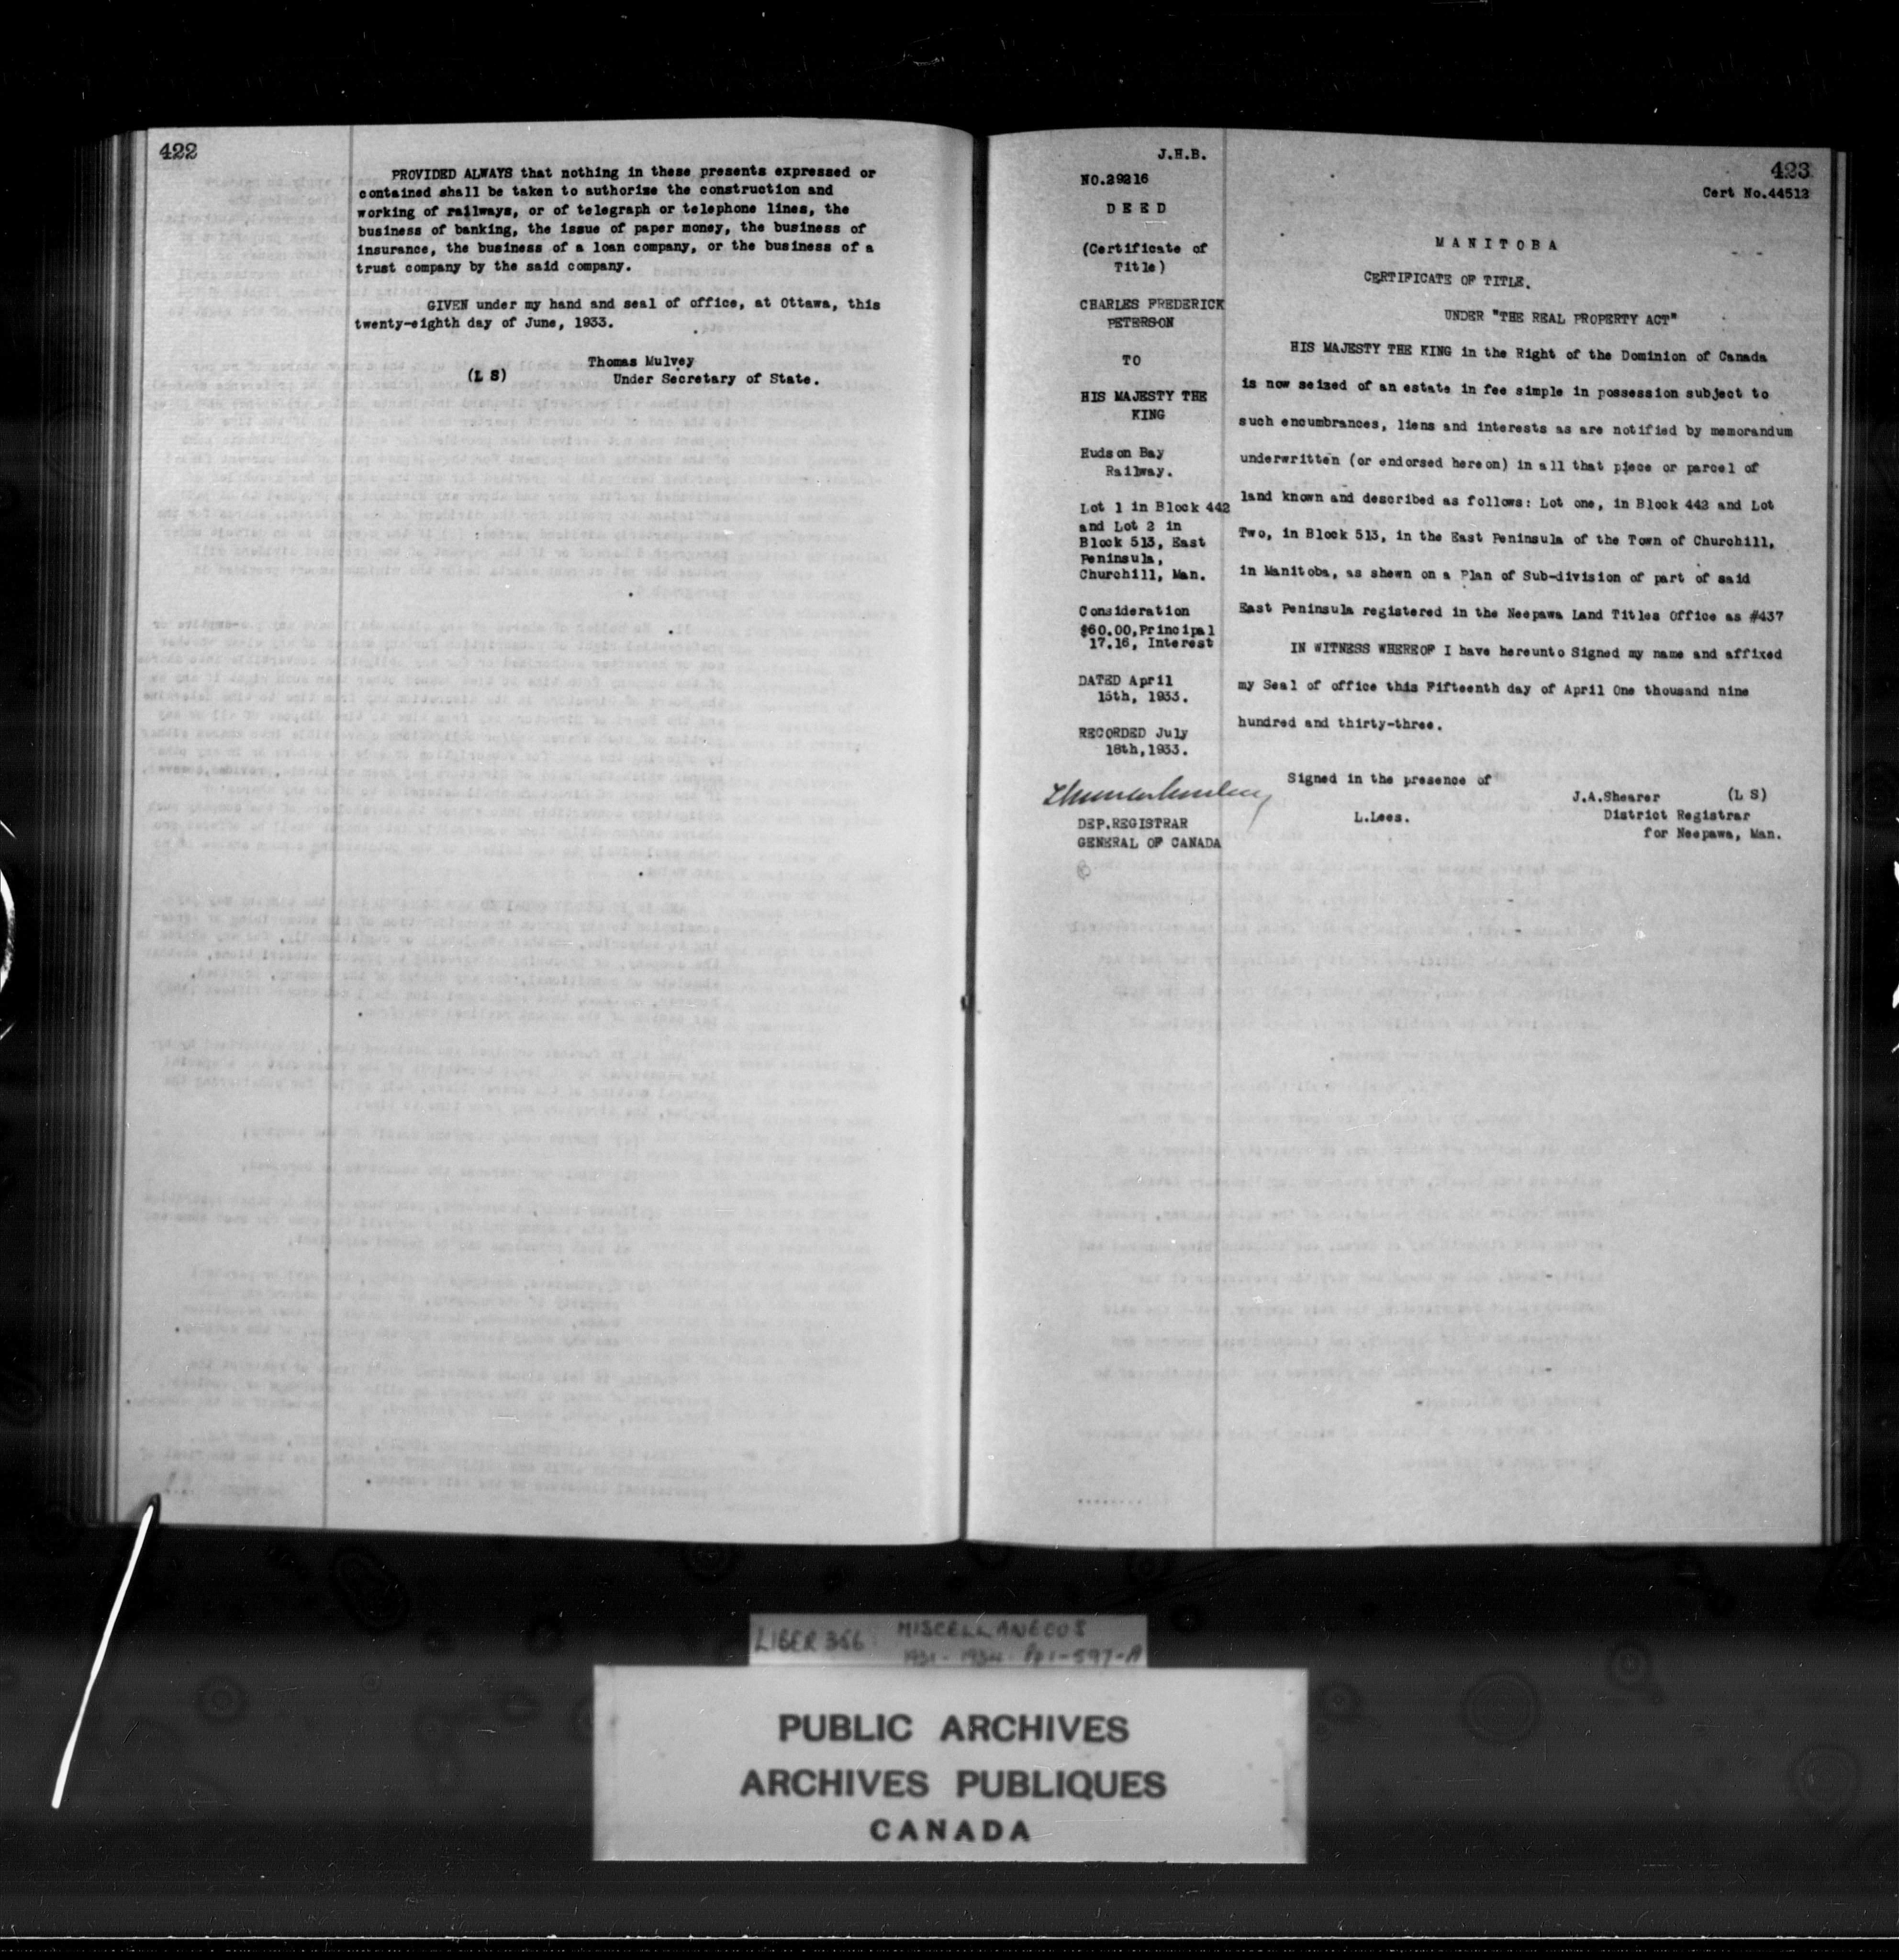 422
PROVIDED ALWAYS that nothing in these presents expressed or
contained shall be taken to authorize the construction and
working of railways, or of telegraph or telephone lines, the
business of banking, the issue of paper money, the business of
insurance, the business of a loan company, or the business of a
trust company by the said company.
GIVEN under my hand and seal of office, at Ottawa, this
twenty-eighth day of June, 1933.
Thomas Mulvey
(L S) Under Secretary of State.
J.H.B.
NO.39216
D E E D
(Certificate of
Title)
CHARLES FREDERICK
PETERSON
TO
HIS MAJESTY THE
KING
Hudson Bay
Railway.
Lot 1 in Block 442
and Lot 2 in
Block 513, East
Peninsula,
Churchill, Man.
Consideration
$60.00,Principal
17.16, Interest
DATED April
15th, 1933.
RECORDED July
18th,1933.
DEP.REGISTRAR
GENERAL OF CANADA
423
Cert No.44512
M A N I T O B A
CERTIFICATE OF TITLE.
UNDER "THE REAL PROPERTY ACT"
HIS MAJESTY THE KING in the Right of the Dominion of Canada
is now seized of an estate in fee simple in possession subject to
such encumbrances, liens and interests as are notified by memorandum
underwritten (or endorsed hereon) in all that piece or parcel of
land known and described as follows: Lot one, in Block 442 and Lot
Two, in Block 513, in the East Peninsula of the Town of Churchill,
in Manitoba, as shewn on a Plan of Sub-division of part of said
East Peninsula registered in the Neepawa Land Titles Office as #437
IN WITNESS WHEREOF I have hereunto Signed my name and affixed
my Seal of office this Fifteenth day of April One thousand nine
hundred and thirty-three.
Signed in the presence of
L.Lees.
J.A.Shearer (L S)
District Registrar
for Neepawa, Man.
LIBER 366 MISCELLANEOUS
1931-1934 Pp 1-597-A
PUBLIC ARCHIVES
ARCHIVES PUBLIQUES
CANADA